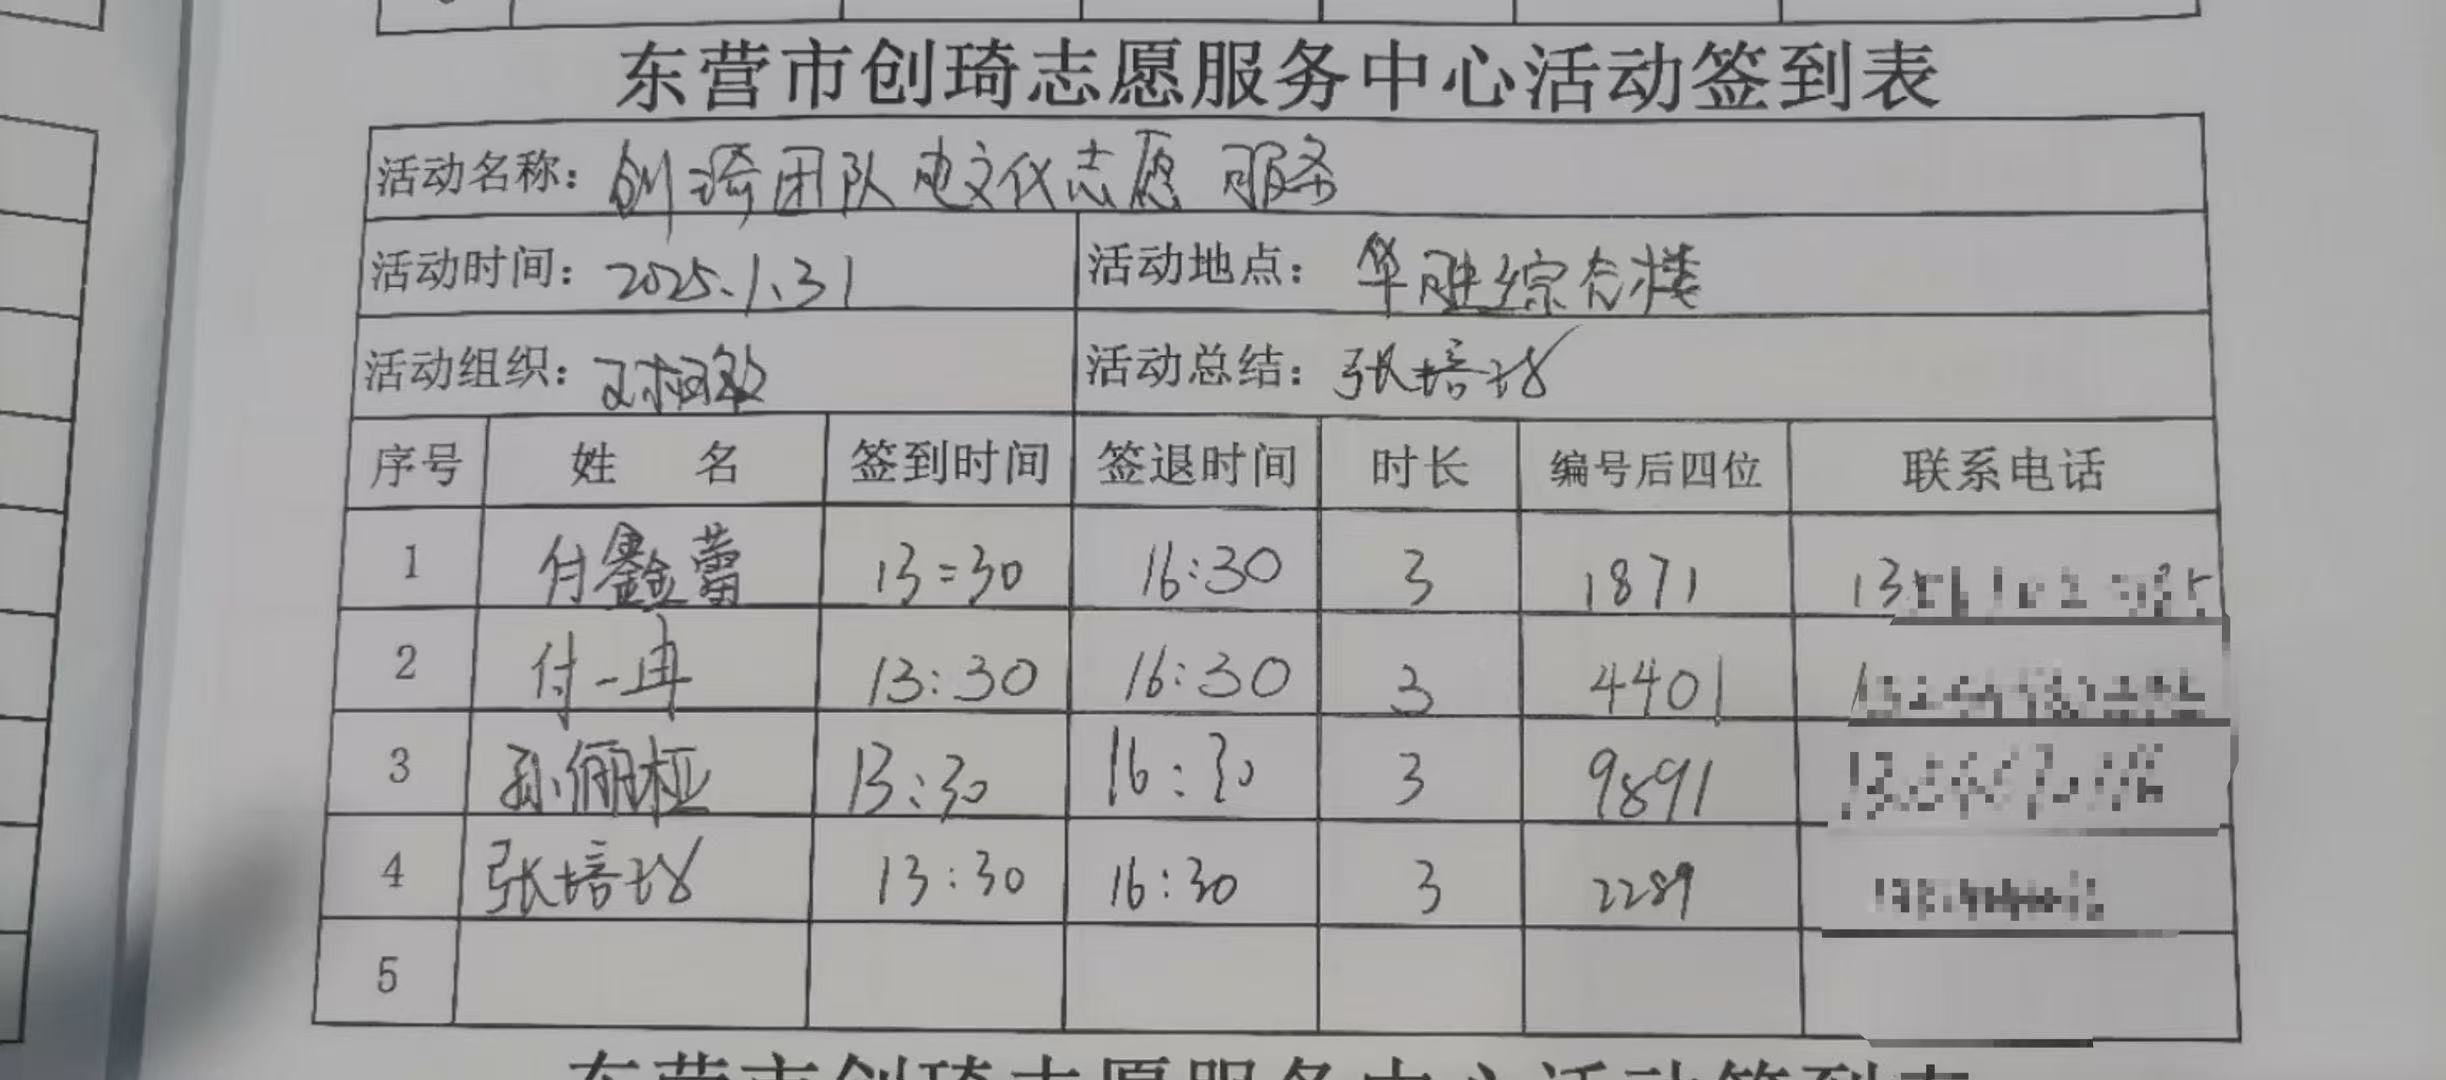 东营市创琦志愿服务中心活动签到表
活动名称：创琦团队电文仪志愿服务
活动时间：2025.1.31 活动地点：华胜综合楼
活动组织： 活动总结：张培
序号 姓名 签到时间 签退时间 时长 编号后四位 联系电话
1 付鑫蕾 13:30 16:30 3 1871 13
2 付一冉 13:30 16:30 3 4401
3 孙俪桠 13:30 16:30 3 9891
4 张培 13:30 16:30 3 2289
5
东营市创琦志愿服务中心活动签到表